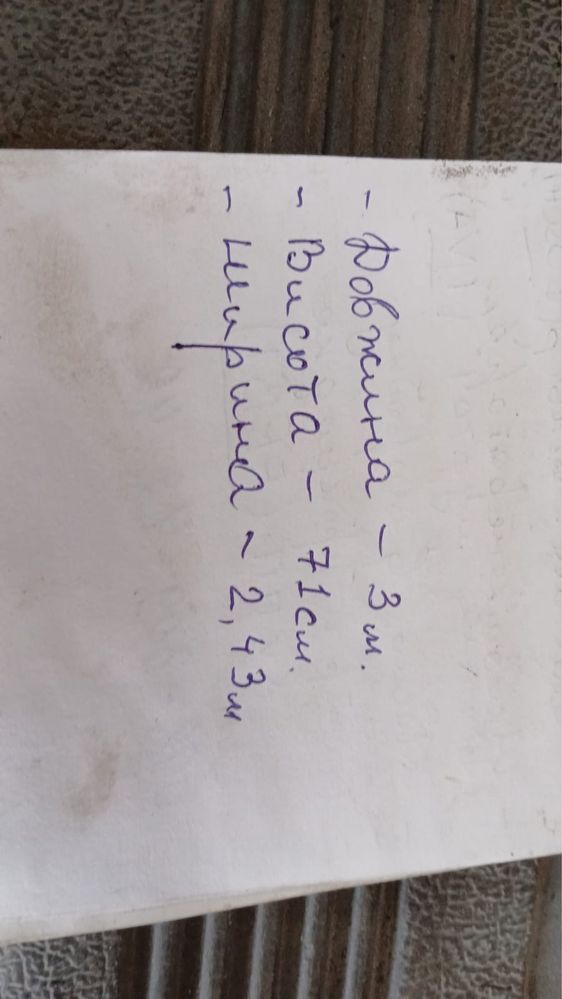 - Довжина - 3м.
- Висота - 71см.
- Ширина - 2,43м